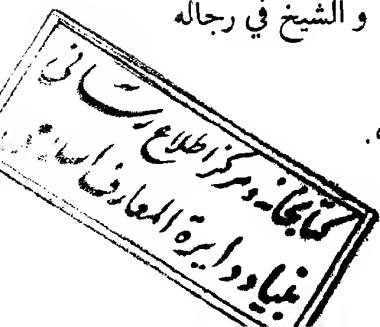 و الشيخ في رجاله
.
كتابخانه و مركز اطلاع رسانى
بنياد دايرة المعارف اسلامى